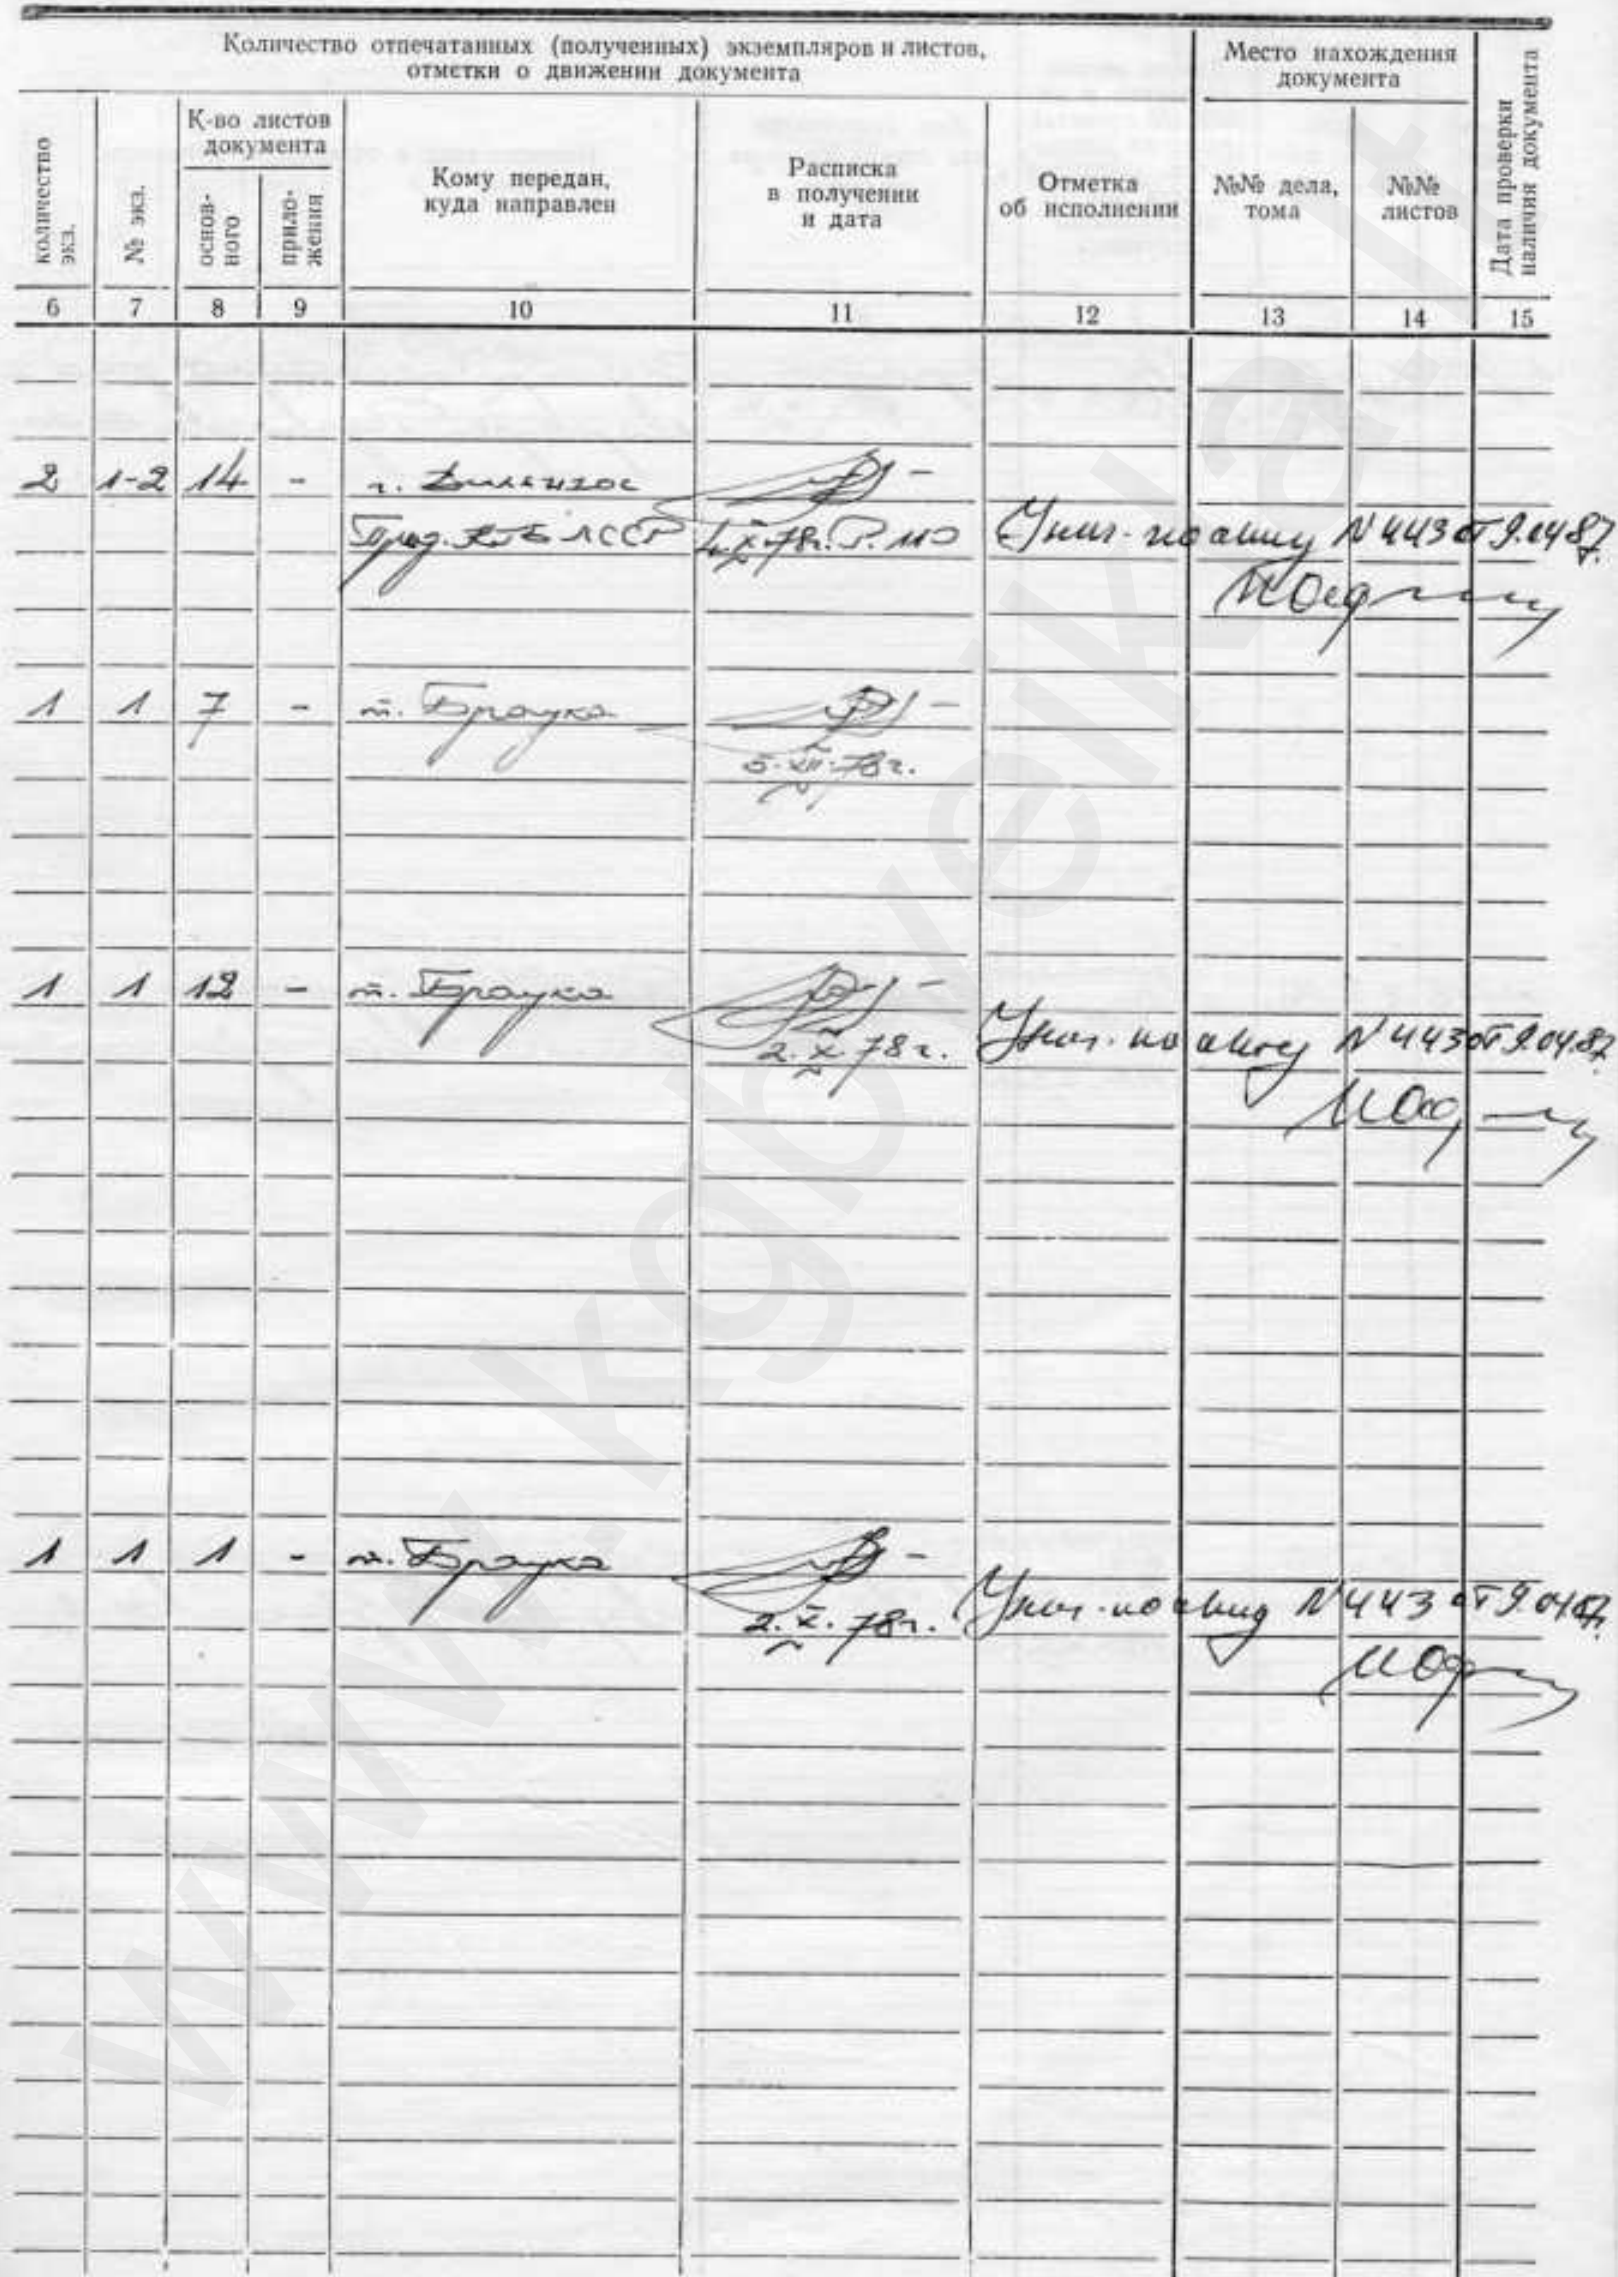 Количество отпечатанных (полученных) экземпляров и листов,
отметки о движении документа
Место нахождения
документа
Дата проверки
наличия документа
количество
экз.
№ экз.
К-во листов
документа
основ-
ного
прило-
жения
Кому передан,
куда направлен
Расписка
в получении
и дата
Отметка
об исполнении
№№ дела,
тома
№№
листов
6 7 8 9 10 11 12 13 14 15
2 1-2 14 - г. Вильнюс
Пред. КГБ ЛССР X.78г. Унич. по акту N 443 от 9.04.87.
1 1 7 - т. Браука
5.XII.78г.
1 1 12 - т. Браука
2.X.78г. Унич. по акту N 443 от 9.04.87
1 1 1 - т. Браука
2.X.78г. Унич. по акту N 443 от 9.04.87.
www.kgbveikla.lt